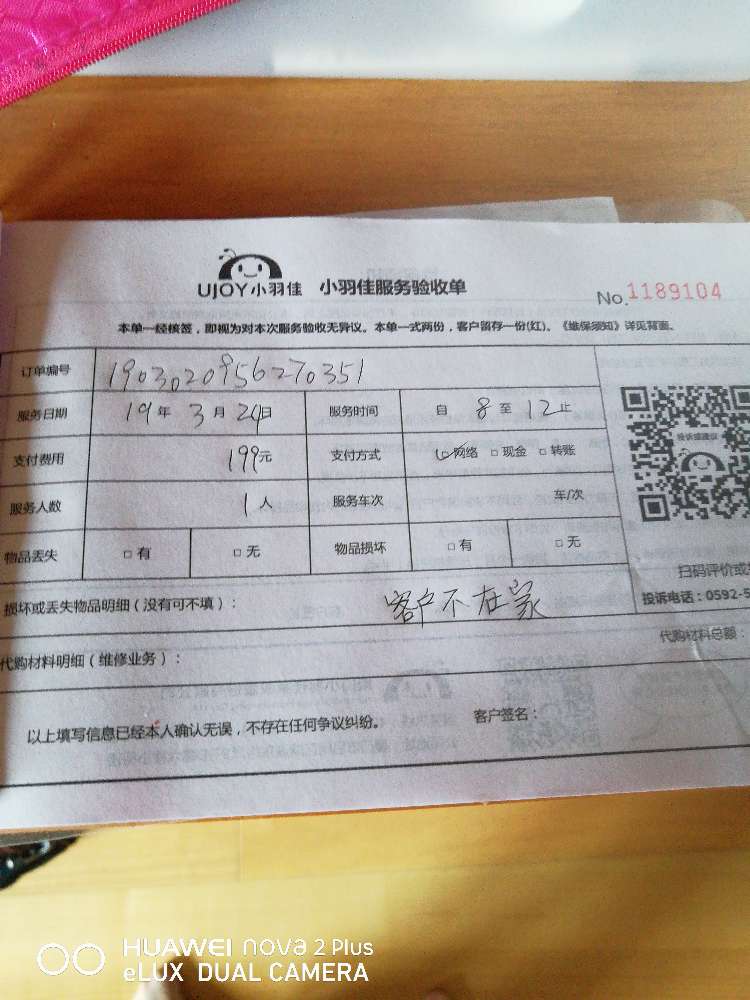 UJOY小羽佳 小羽佳服务验收单
No.1189104
本单一经核签,即视为对本次服务验收无异议。本单一式两份,客户留存一份(红)。《维保须知》详见背面。
订单编号 1903020956270351
服务日期 19年 3月 24日 服务时间 自 8 至 12 止
支付费用 199元 支付方式 ☑网络 □现金 □转账
服务人数 1人 服务车次 车/次
物品丢失 □有 □无 物品损坏 □有 □无
投诉或建议
扫码评价或
损坏或丢失物品明细(没有可不填): 客户不在家
投诉电话:0592-5
代购材料明细(维修业务): 代购材料总额:
以上填写信息已经本人确认无误,不存在任何争议纠纷。 客户签名:
HUAWEI nova 2 Plus
eLUX DUAL CAMERA